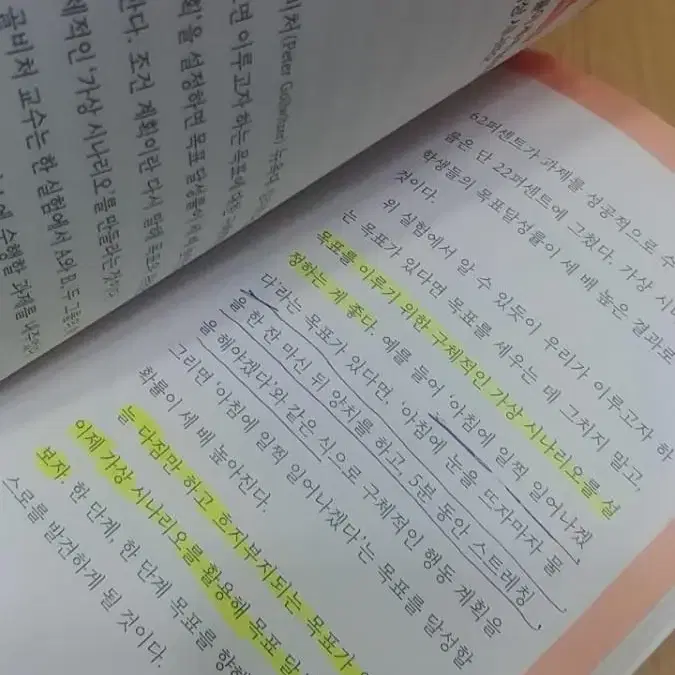 피터 골비처(Peter Gollwitzer)
획'을 설정하면 목표 달성률이
면 이루고자 하는 목표에
한다. 조건 계획이란 다시 말해
체적인 '가상 시나리오'를 만들라는 것이다.
골비처 교수는 한 실험에서 A와 B, 두 그룹의
에 수행할 과제를 내주었다
62퍼센트가 과제를 성공적으로 수
률은 단 22퍼센트에 그쳤다. 가상 시나
학생들의 목표달성률이 세 배 높은 결과로
것이다.
위 실험에서 알 수 있듯이 우리가 이루고자 하
는 목표가 있다면 목표를 세우는 데 그치지 말고,
목표를 이루기 위한 구체적인 가상 시나리오를 설
정하는 게 좋다. 예를 들어 '아침에 일찍 일어나겠
다'라는 목표가 있다면, '아침에 눈을 뜨자마자 물
을 한 잔 마신 뒤 양치를 하고, 5분 동안 스트레칭
을 해야겠다'와 같은 식으로 구체적인 행동 계획을
그리면 '아침에 일찍 일어나겠다'는 목표를 달성할
확률이 세 배 높아진다.
늘 다짐만 하고 흐지부지되는 목표가
이제 가상 시나리오를 활용해 목표 달
보자. 한 단계, 한 단계 목표를 향해
스로를 발견하게 될 것이다.